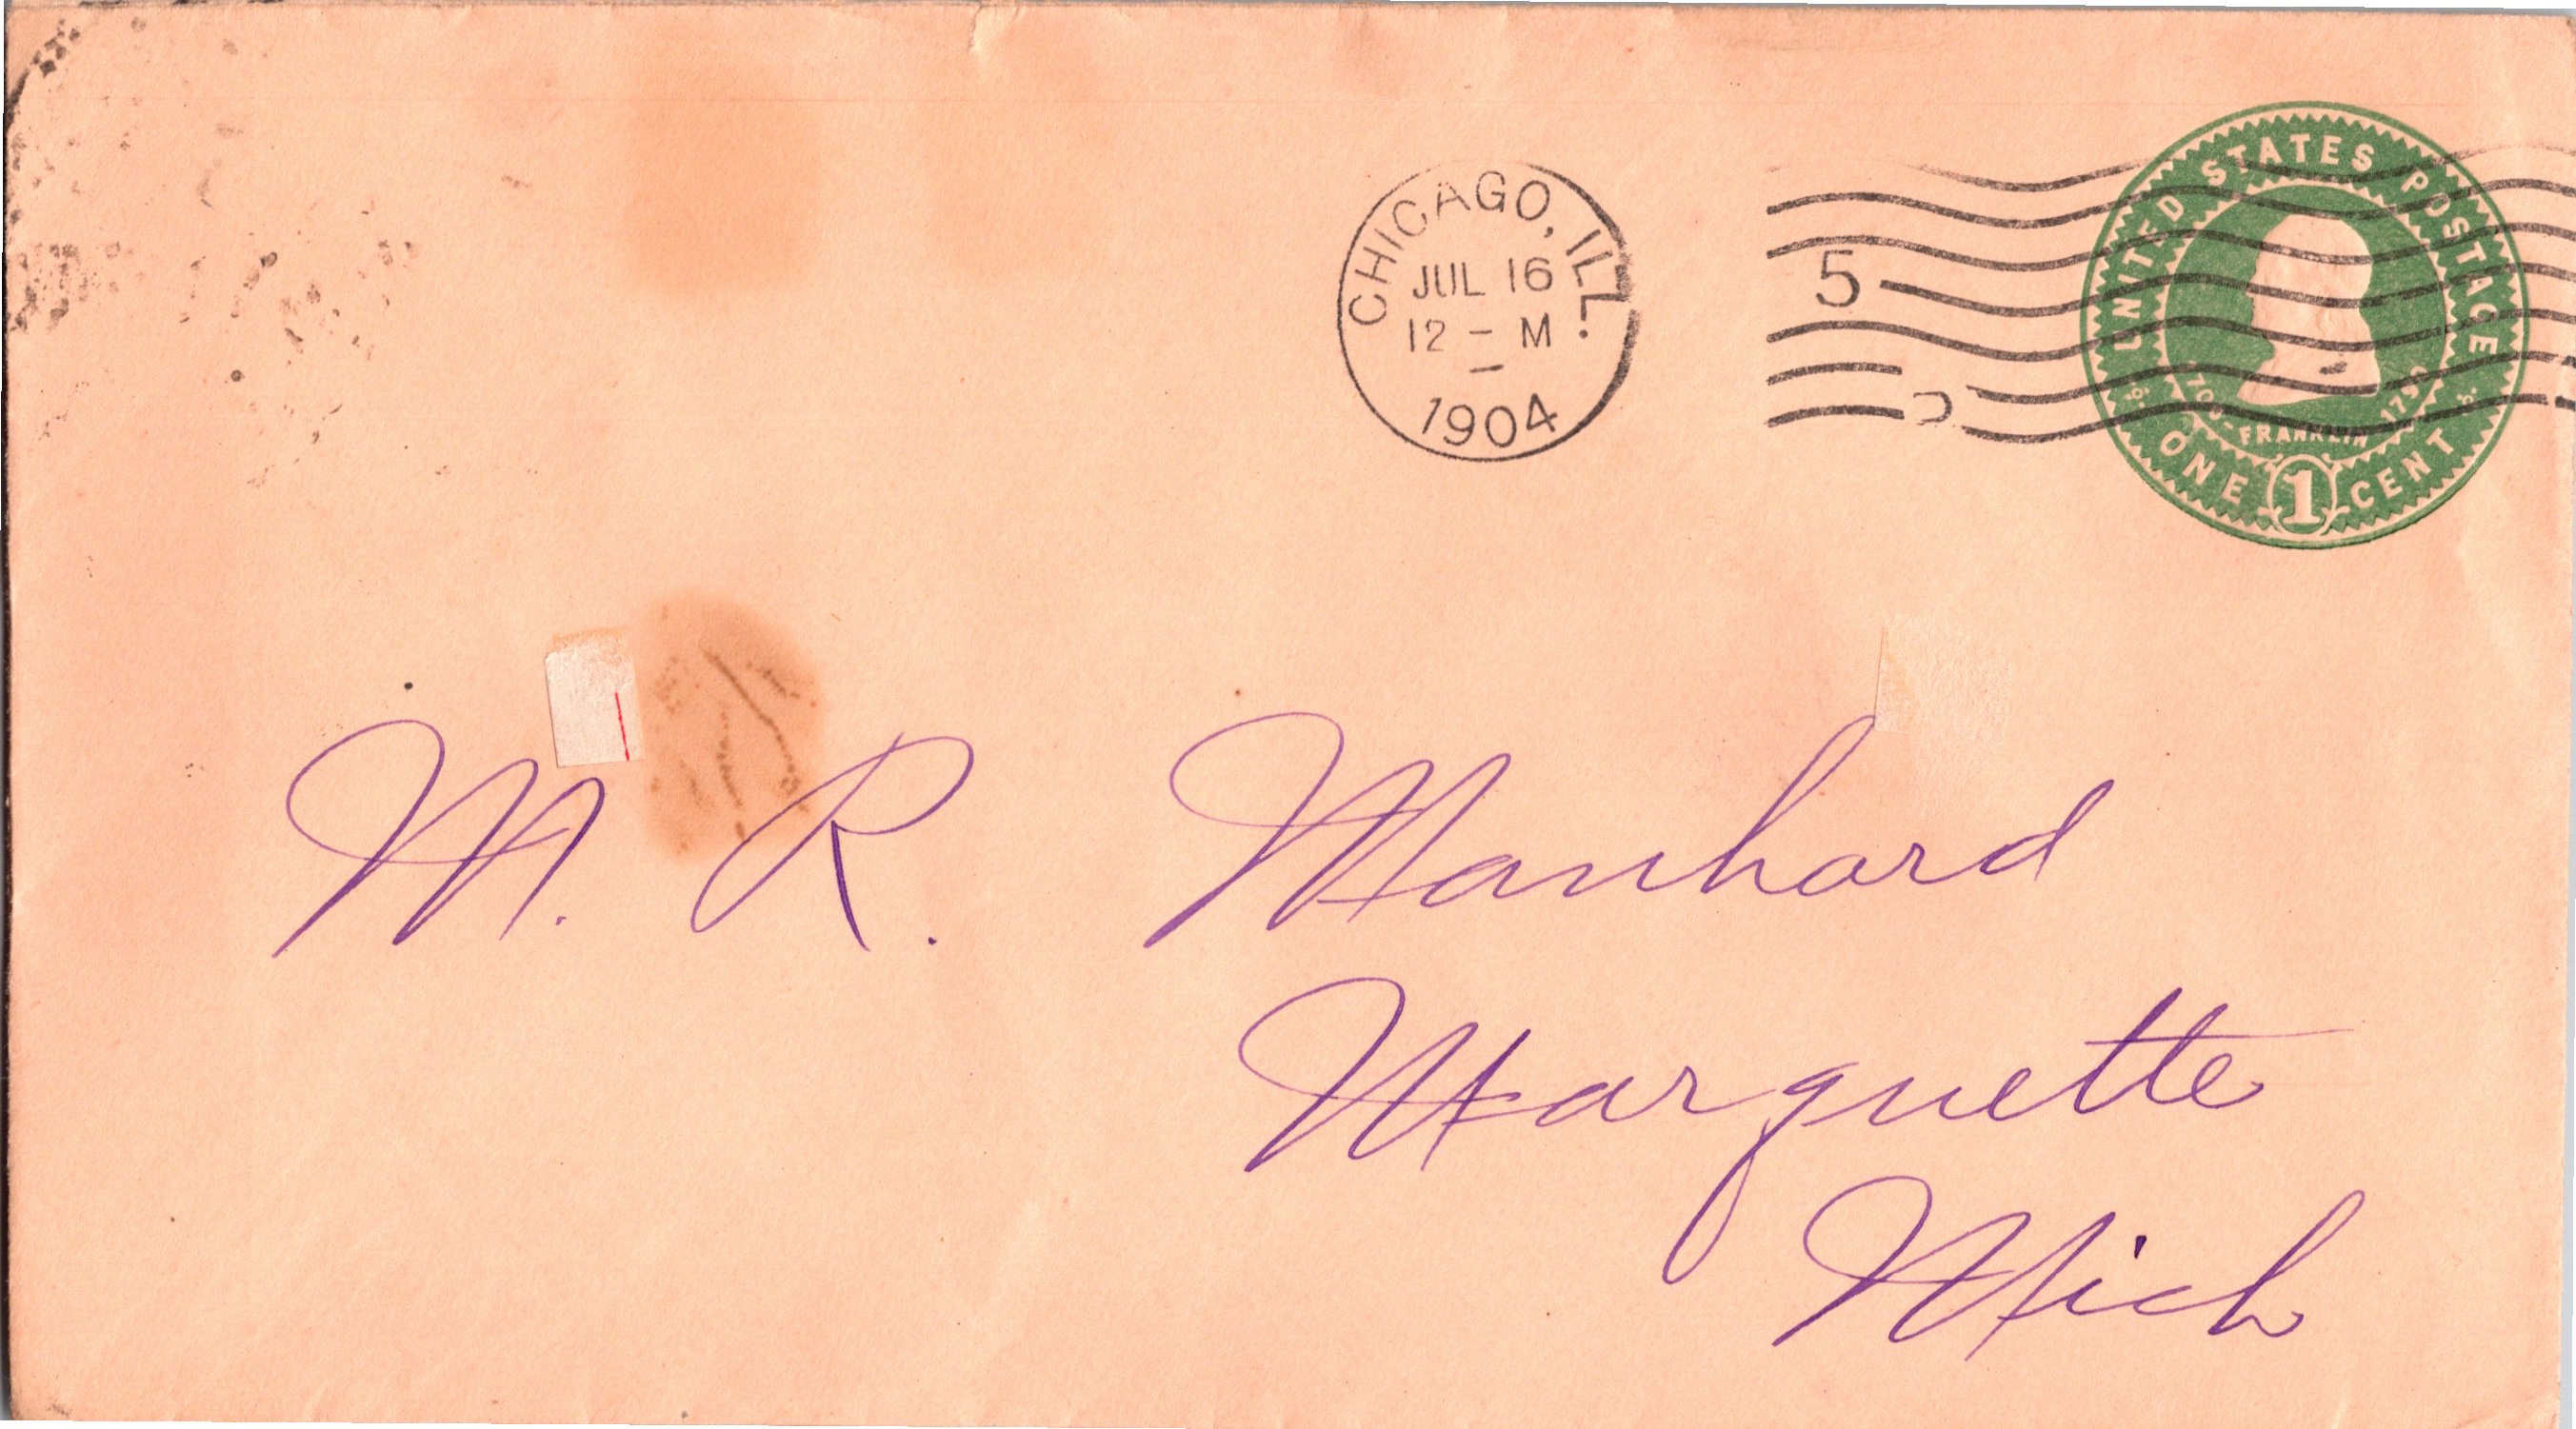 CHICAGO, ILL.
JUL 16
12 - M
1904
5
UNITED STATES POSTAGE
FRANKLIN
ONE 1 CENT
M. R. Manhard
Marquette
Mich